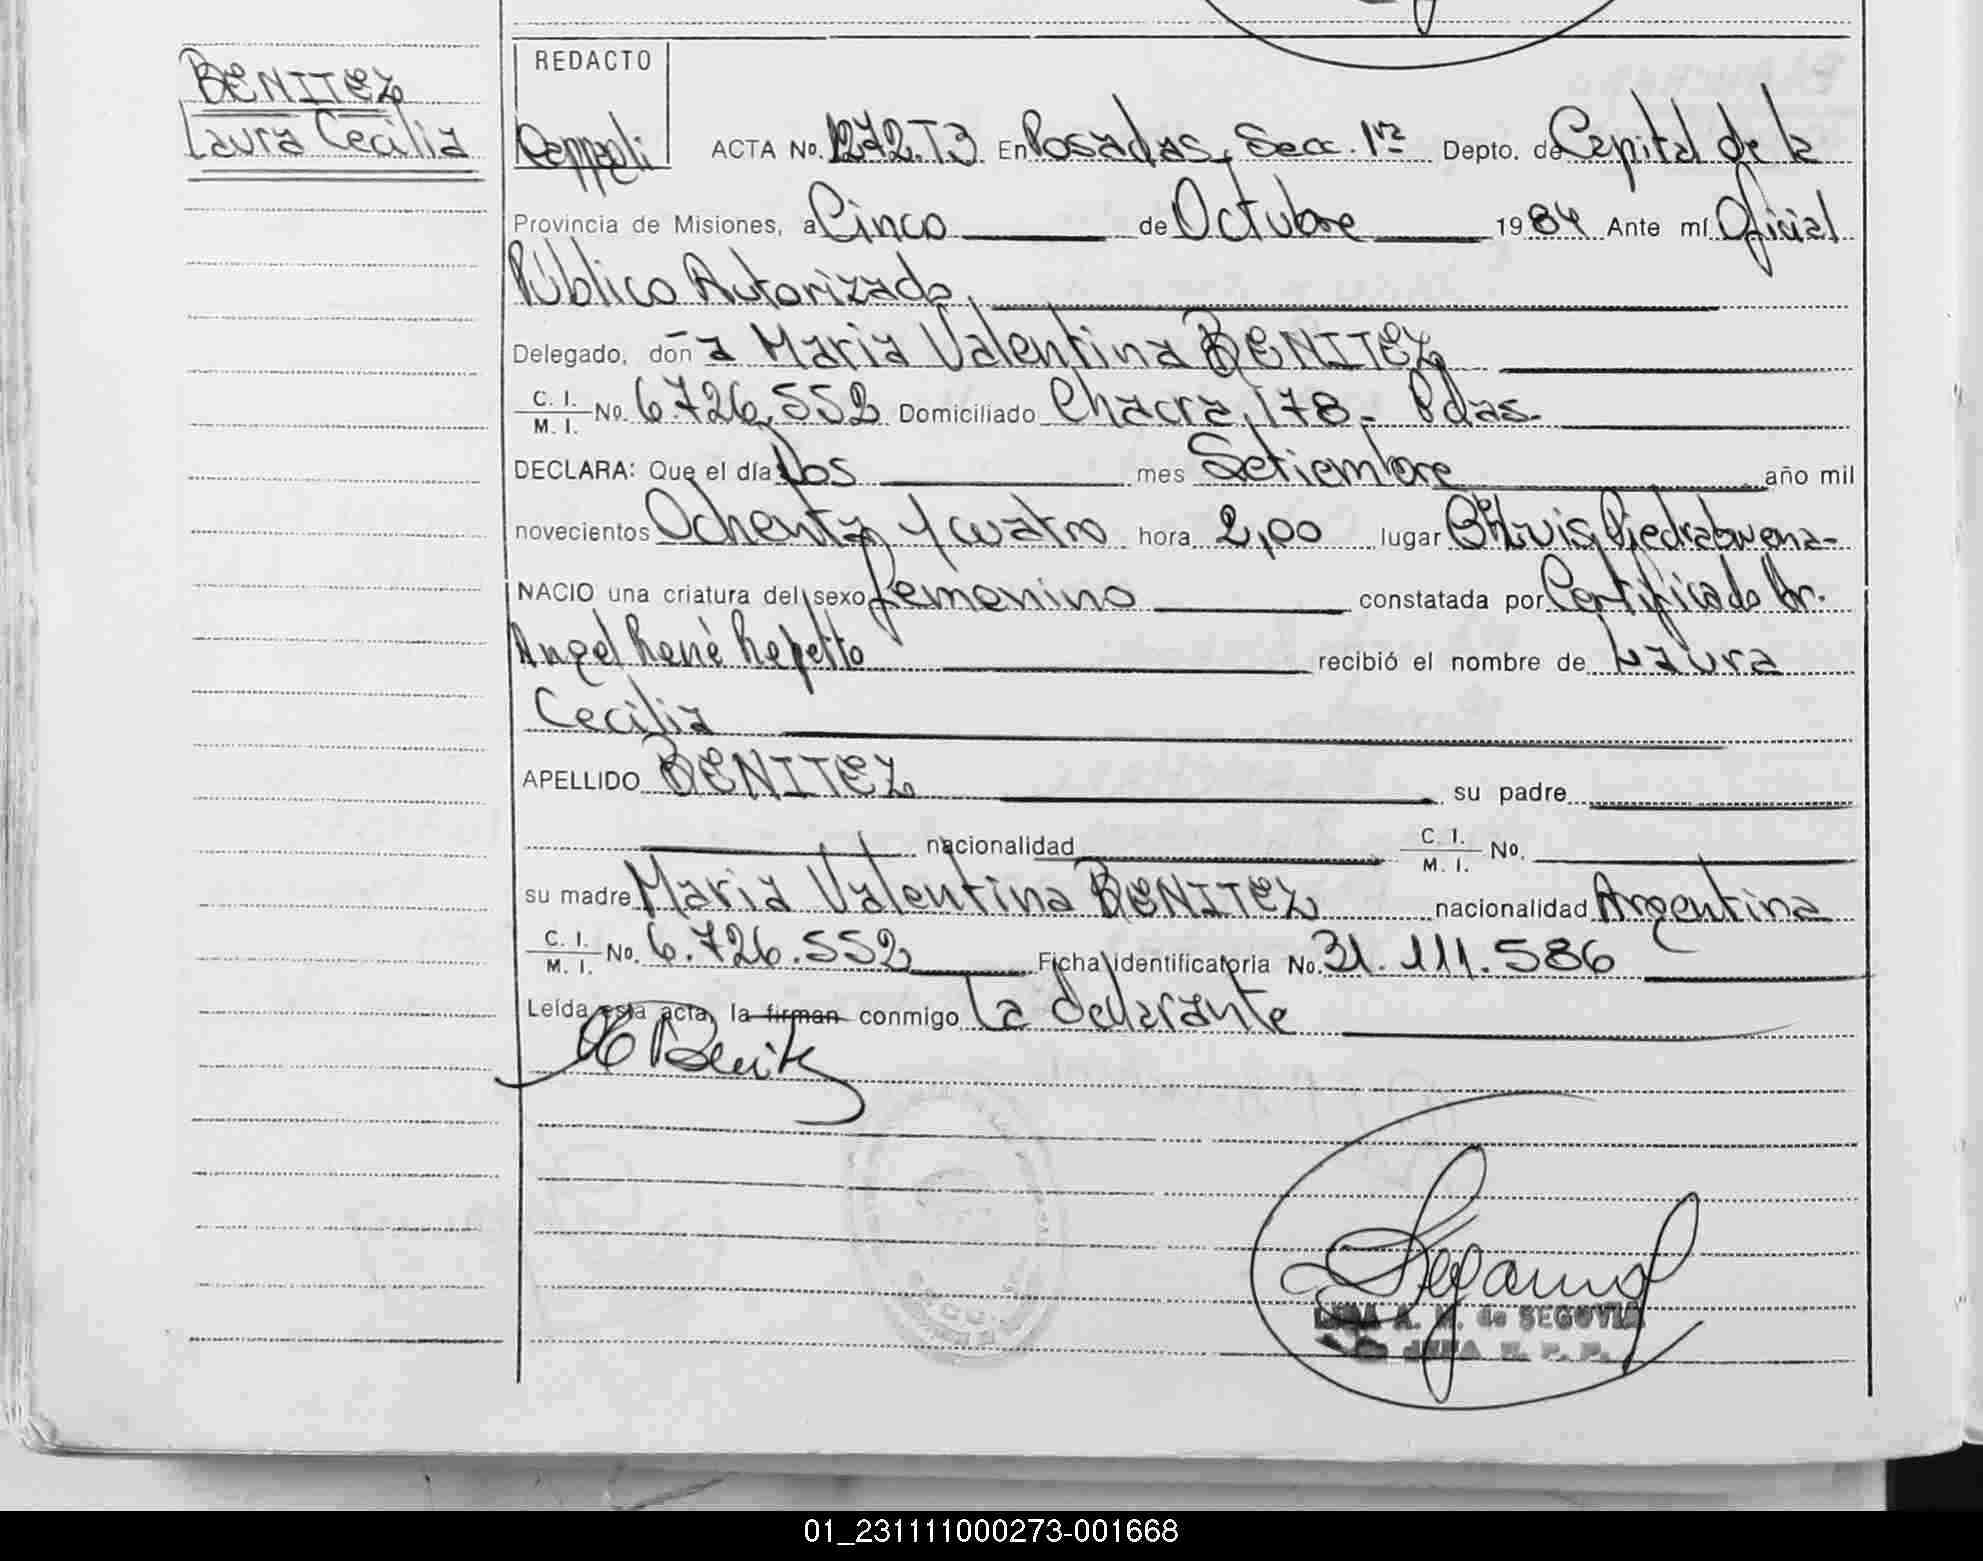 BENITEZ
Laura Cecilia
REDACTO
ACTA No. 1272.T3 En Posadas, Secc. 1ra Depto. de Capital de la
Provincia de Misiones, a Cinco de Octubre 1984 Ante mí Oficial
Público Autorizado,
Delegado, don - a Maria Valentina BENITEZ
C. I.
M. I. No. 6.726.552 Domiciliado Chacra 178 - Pdas.
DECLARA: Que el día Dos mes Setiembre año mil
novecientos Ochenta y cuatro hora 2,00 lugar Luis Piedrabuena-
NACIO una criatura del sexo femenino constatada por Certificado Dr.
Angel René Repetto recibió el nombre de Laura
Cecilia
APELLIDO BENITEZ su padre
nacionalidad C. I.
M. I. No.
su madre Maria Valentina BENITEZ nacionalidad Argentina
C. I.
M. I. No. 6.726.552 Ficha identificatoria No. 31.111.586
Leída esta acta, la firman conmigo La declarante
Benitez
A. M. de SEGOVIA
JEFA
01_231111000273-001668